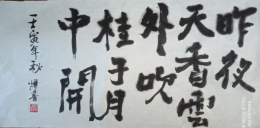 昨夜
天香雲
外吹
桂子月
中開
壬寅年秋